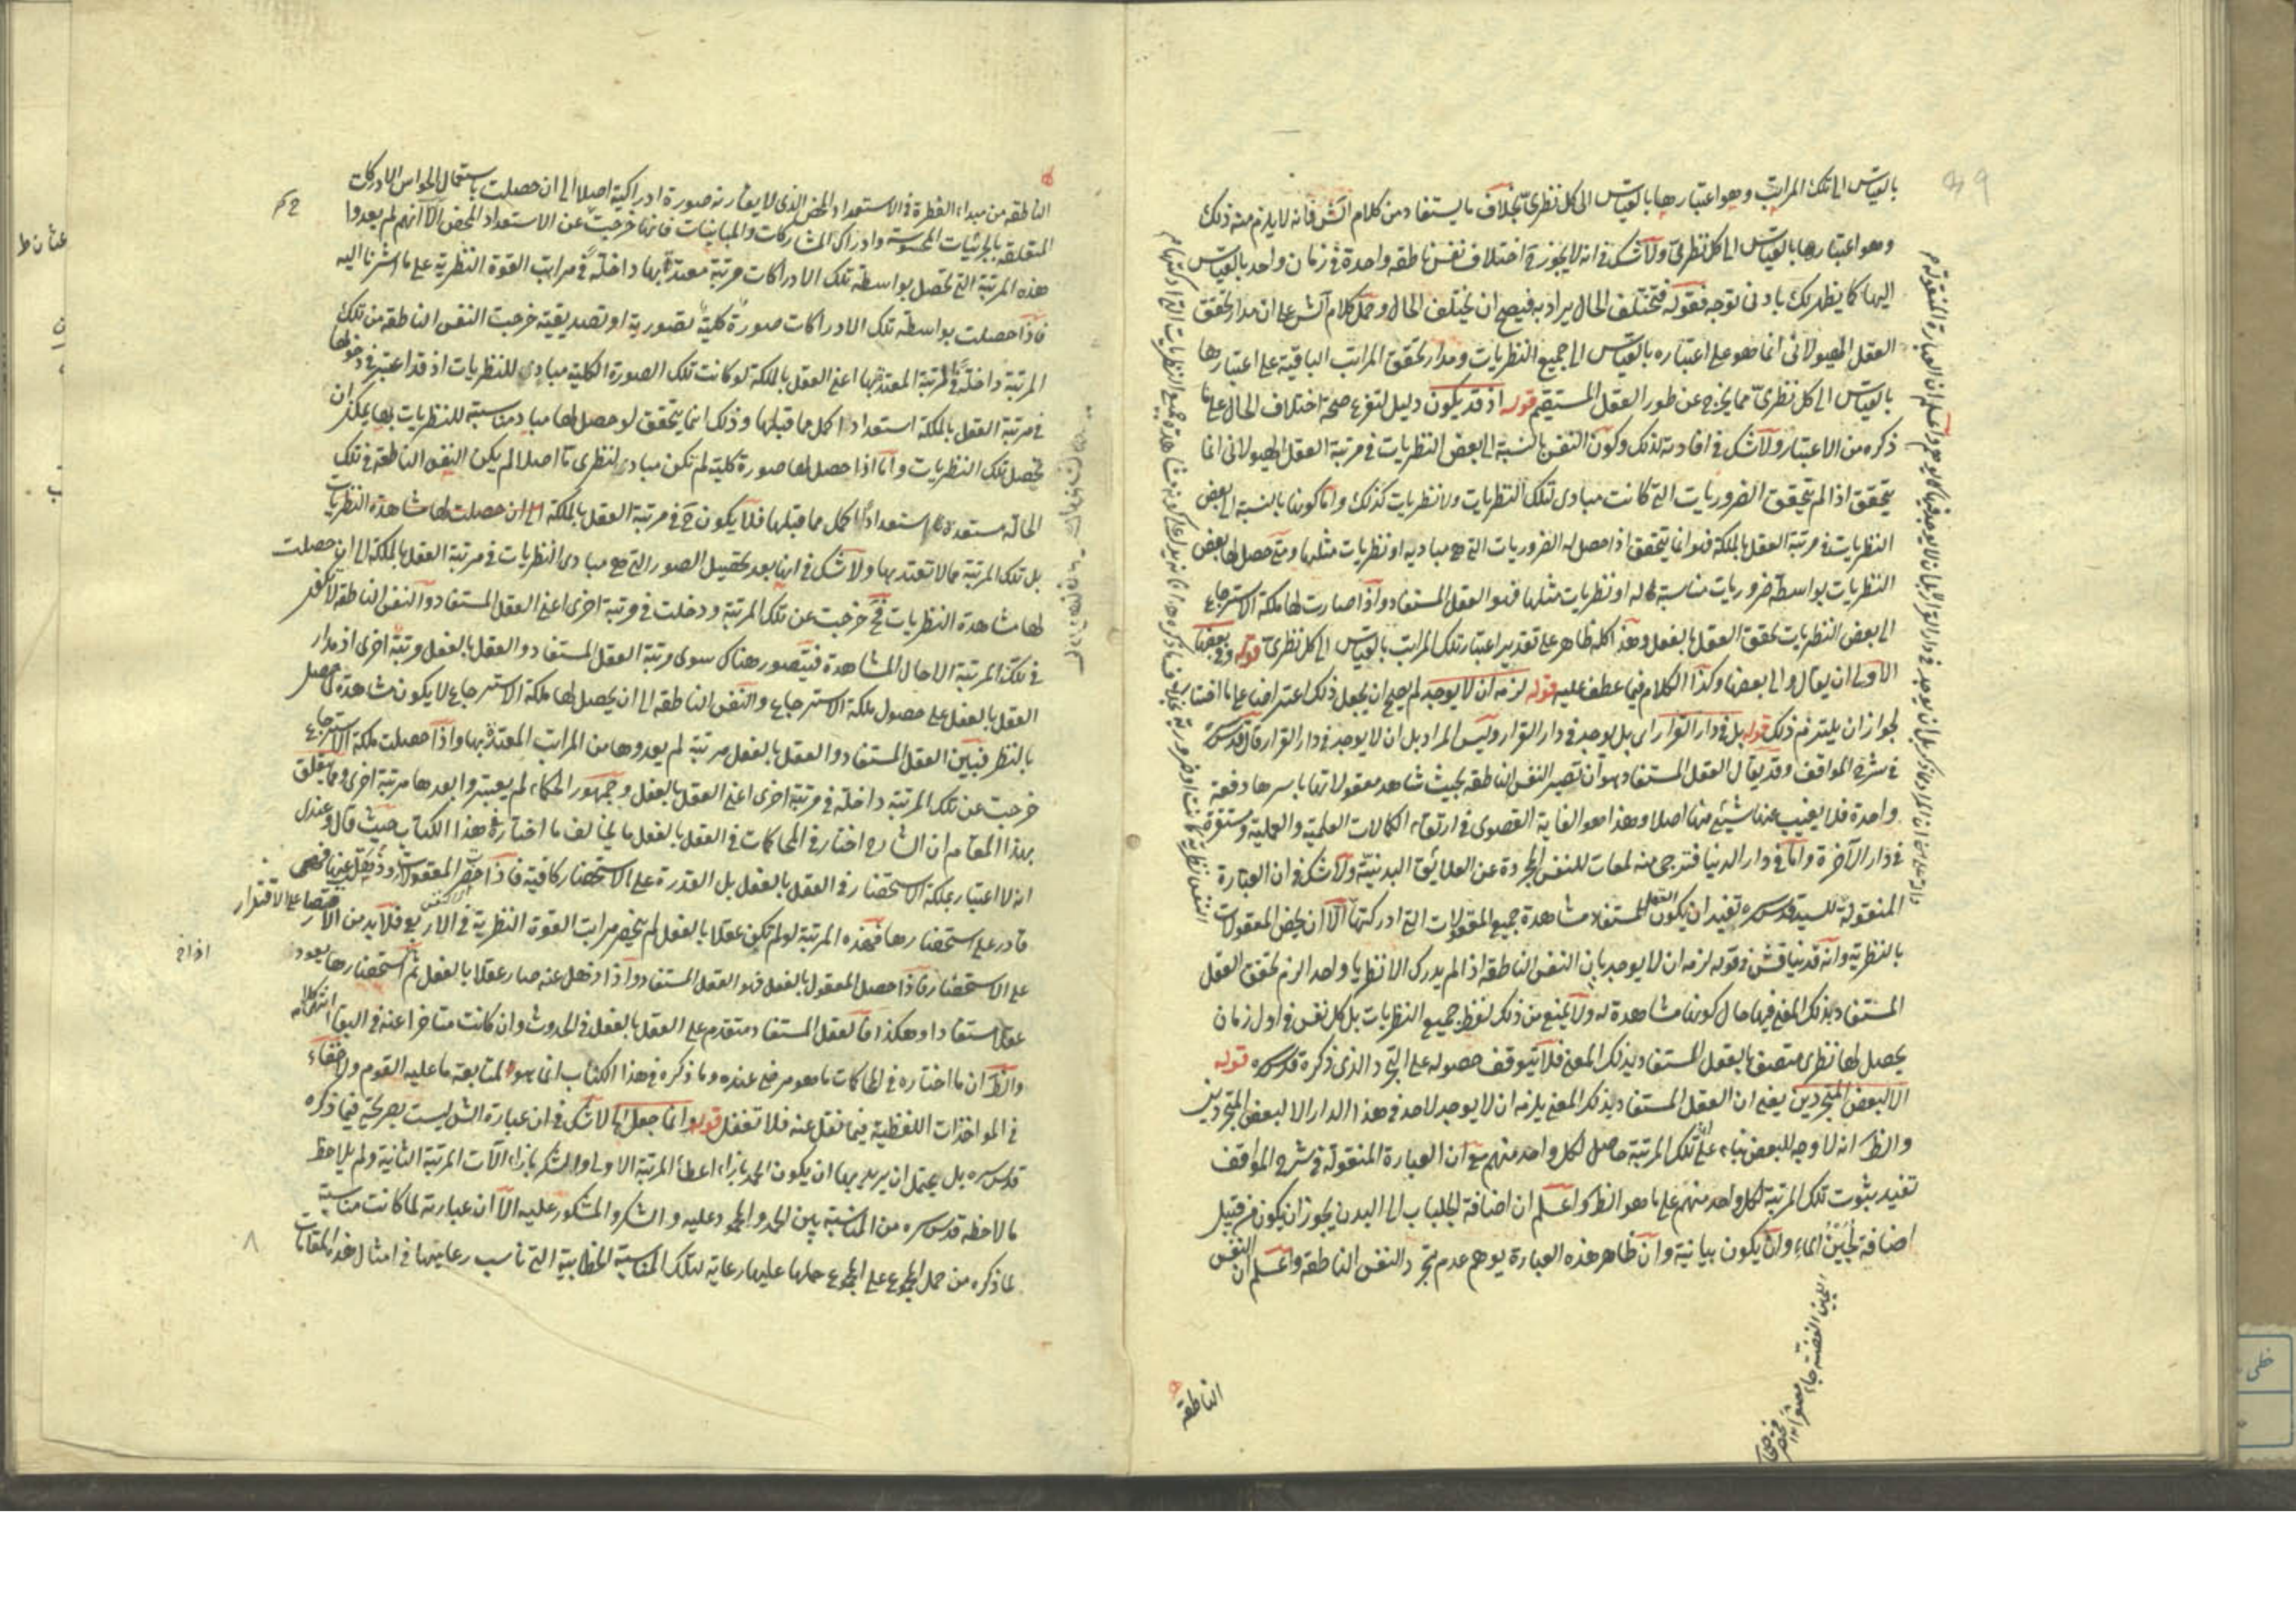 بالقياس الى تلك المراتب وهو اعتبارها بالقياس الى كل نظرى بخلاف ما يستفاد من كلام الش فانه لا يلزم منه ذلك
وهو اعتبارها بالقياس الى كل نظرى ولا شك فى انه لا يجوز فى اختلاف نفس ناطقه واحدة فى زمان واحد بالقياس
اليها كما يظهر لك بادنى توجه فقوله فتختلف الحال يراد به فيصح ان يختلف الحال وحمل كلام الش على ان مدار تحقق
العقل الهيولانى انما هو على اعتباره بالقياس الى جميع النظريات ومدار تحقق المراتب الباقية على اعتبارها
بالقياس الى كل نظرى مما يخرج عن طور العقل المستقيم قوله اذ قد يكون دليل لتفرع صحة اختلاف الحال على ما
ذكره من الاعتبار ولا شك فى افادته لذلك وكون النفس بالنسبة الى بعض النظريات فى مرتبة العقل الهيولانى انما
يتحقق اذا لم يتحقق الضروريات التى كانت مبادى لتلك النظريات ولا نظريات كذلك واما كونها بالنسبة الى بعض
النظريات فى مرتبة العقل بالملكة فهو انما يتحقق اذا حصل له الضروريات التى هى مباديه او نظريات مثلها ومتى حصل لها بعض
النظريات بواسطة ضروريات مناسبة له او نظريات مثلها فهو العقل المستفاد واذا صارت لها ملكة الاسترجاع
الى بعض النظريات تحقق العقل بالفعل وهذا كله ظاهر على تقدير اعتبار تلك المراتب بالقياس الى كل نظرى قوله وفى بعضها
الاولى ان يقال والى بعضها وكذا الكلام فيما عطف عليه قوله لزمه ان لا يوجد لم يصح ان يجعل ذلك اعتراضا على ما اختاره
لجواز ان يلتزم ذلك قوله بل فى دار القرار اى بل يوجد فى دار القرار وليس المراد بل ان لا يوجد فى دار القرار قال قدس سره
فى شرح المواقف وقد يقال العقل المستفاد هو ان تصير النفس الناطقه بحيث تشاهد معقولاتها باسرها دفعة
واحدة فلا يغيب عنها شيئ منها اصلا وهذا هو الغاية القصوى فى ارتقاء الكمالات العلمية والعملية ومستقرة
فى دار الآخرة واما فى دار الدنيا فترجى منه لمعات للنفس المجردة عن العلائق البدنية ولا شك فى ان العبارة
المنقولة للسيد قدس سره تفيد ان يكون العقل المستفاد مشاهدة جميع المعقولات التى ادركتها الا ان يخص المعقولات
بالنظرية وانه قد يناقش فى قوله لزمه ان لا يوجد بان النفس الناطقه اذا لم يدرك الا نظريا واحدا لزم تحقق العقل
المستفاد بذلك المعنى فيها حال كونها مشاهدة له ولا يمنع من ذلك لفظ جميع النظريات بل كل نفس فى اول زمان
يحصل لها نظرى متصف بالعقل المستفاد بذلك المعنى فلا يتوقف حصوله على التجرد الذى ذكره قدس سره قوله
الا لبعض المتجردين يعنى ان العقل المستفاد بذلك المعنى يلزمه ان لا يوجد لاحد فى هذا الدار الا لبعض المتجردين
والظ انه لا وجه للبعض بناء على ان تلك المرتبة حاصل لكل واحد منهم مع ان العبارة المنقولة فى شرح المواقف
تفيد بثبوت تلك المرتبة لكل واحد منهم على ما هو الظ واعلم ان اضافة الجلباب الى البدن يجوز ان يكون من قبيل
اضافة لجين الماء وان يكون بيانية وان ظاهر هذه العبارة يوهم عدم تجرد النفس الناطقه واعلم ان النفس
اللجين الفضة جاء مصغرا
الناطقه
الناطقه من مبداء الفطرة فى الاستعداد المحض الذى لا يقارنه صورة ادراكية اصلا الى ان حصلت باستعمال الحواس الادراكات
المتعلقه بالجزئيات المحسوسة وادراك المشاركات والمباينات فانها خرجت عن الاستعداد المحض الا انهم لم يعدوا
هذه المرتبة التى تحصل بواسطة تلك الادراكات مرتبة معتدة بها داخلة فى مراتب القوة النظرية على ما اشرنا اليه
فاذا حصلت بواسطة تلك الادراكات صورة كلية تصورية او تصديقية خرجت النفس الناطقه من تلك
المرتبة داخلة فى المرتبة المعتد بها اعنى العقل بالملكة لو كانت تلك الصورة الكلية مبادى للنظريات اذ قد اعتبر فى دخولها
فى مرتبة العقل بالملكة استعدادا اكمل مما قبلها وذلك انما يتحقق لو حصل لها مباد مناسبة للنظريات بها يمكن ان
تحصل تلك النظريات واما اذا حصل لها صورة كلية لم تكن مبادى لنظرى ما اصلا لم يكن النفس الناطقه فى تلك
الحاله مستعدة استعدادا اكمل مما قبلها فلا يكون ح فى مرتبة العقل بالملكة الى ان حصلت لها مشاهدة النظريات
بل تلك المرتبة مما لا تعتد بها ولا شك فى انها بعد تحصيل الصور التى هى مبادى النظريات فى مرتبة العقل بالملكة الى ان حصلت
لها مشاهدة النظريات فح خرجت عن تلك المرتبة ودخلت فى مرتبة اخرى اعنى العقل المستفاد والنفس الناطقه لا تكون
فى تلك المرتبة الا حال المشاهدة فيتصور هناك سوى مرتبة العقل المستفاد والعقل بالفعل مرتبة اخرى اذ مدار
العقل بالفعل على حصول ملكة الاسترجاع والنفس الناطقه الى ان يحصل لها ملكة الاسترجاع لا يكون مشاهدة لما حصل
بالنظر فبين العقل المستفاد والعقل بالفعل مرتبة لم يعدوها من المراتب المعتد بها واذا حصلت ملكة الاسترجاع
خرجت عن تلك المرتبة داخلة فى مرتبة اخرى اعنى العقل بالفعل وجمهور الحكماء لم يعتبروا بعدها مرتبة اخرى ومما يتعلق
بهذا المقام ان الشارح اختار فى المحاكمات فى العقل بالفعل ما يخالف ما اختاره فى هذا الكتاب حيث قال وعندى
انه لا اعتبار بملكة الاستحضار فى العقل بالفعل بل القدرة على الاستحضار كافية فاذا حضرت المعقولات وذهلت عنها فهى
قادر على استحضارها فهذه المرتبة لو لم تكن عقلا بالفعل لم ينحصر مراتب القوة النظرية فى الاربع فلا بد من الاقتصار على الاقتدار
على الاستحضار فاذا حصل المعقول بالفعل فهو العقل المستفاد واذا ذهل عنه صار عقلا بالفعل ثم استحضارها يعود
عقلا مستفادا وهكذا فالعقل المستفاد متقدم على العقل بالفعل فى الحدوث وان كانت متاخرا عنه فى البقاء انتهى كلامه
والظ ان ما اختاره فى المحاكمات ما هو مرضى عنده وما ذكره فى هذا الكتاب انما هو لمتابعة ما عليه القوم ولا خفاء
فى المواخذات اللفظية فيما نقل عنه فلا تغفل قوله وانما جعل لها لا شك فى ان عبارة الش ليست بصريحة فيما ذكره
قدس سره بل يحتمل ان يريد بها ان يكون الحمد بازاء اعطاء المرتبة الاولى والشكر بازاء الآت المرتبة الثانية ولم يلاحظ
ما لاحظه قدس سره من المناسبة بين الحمد والمحمود عليه والشكر والمشكور عليه الا ان عبارته لما كانت مناسبة
لما ذكره من حمل المجموع على المجموع حملها عليها رعاية لتلك المناسبة الخطابية التى تناسب رعايتها فى امثال هذه المقامات